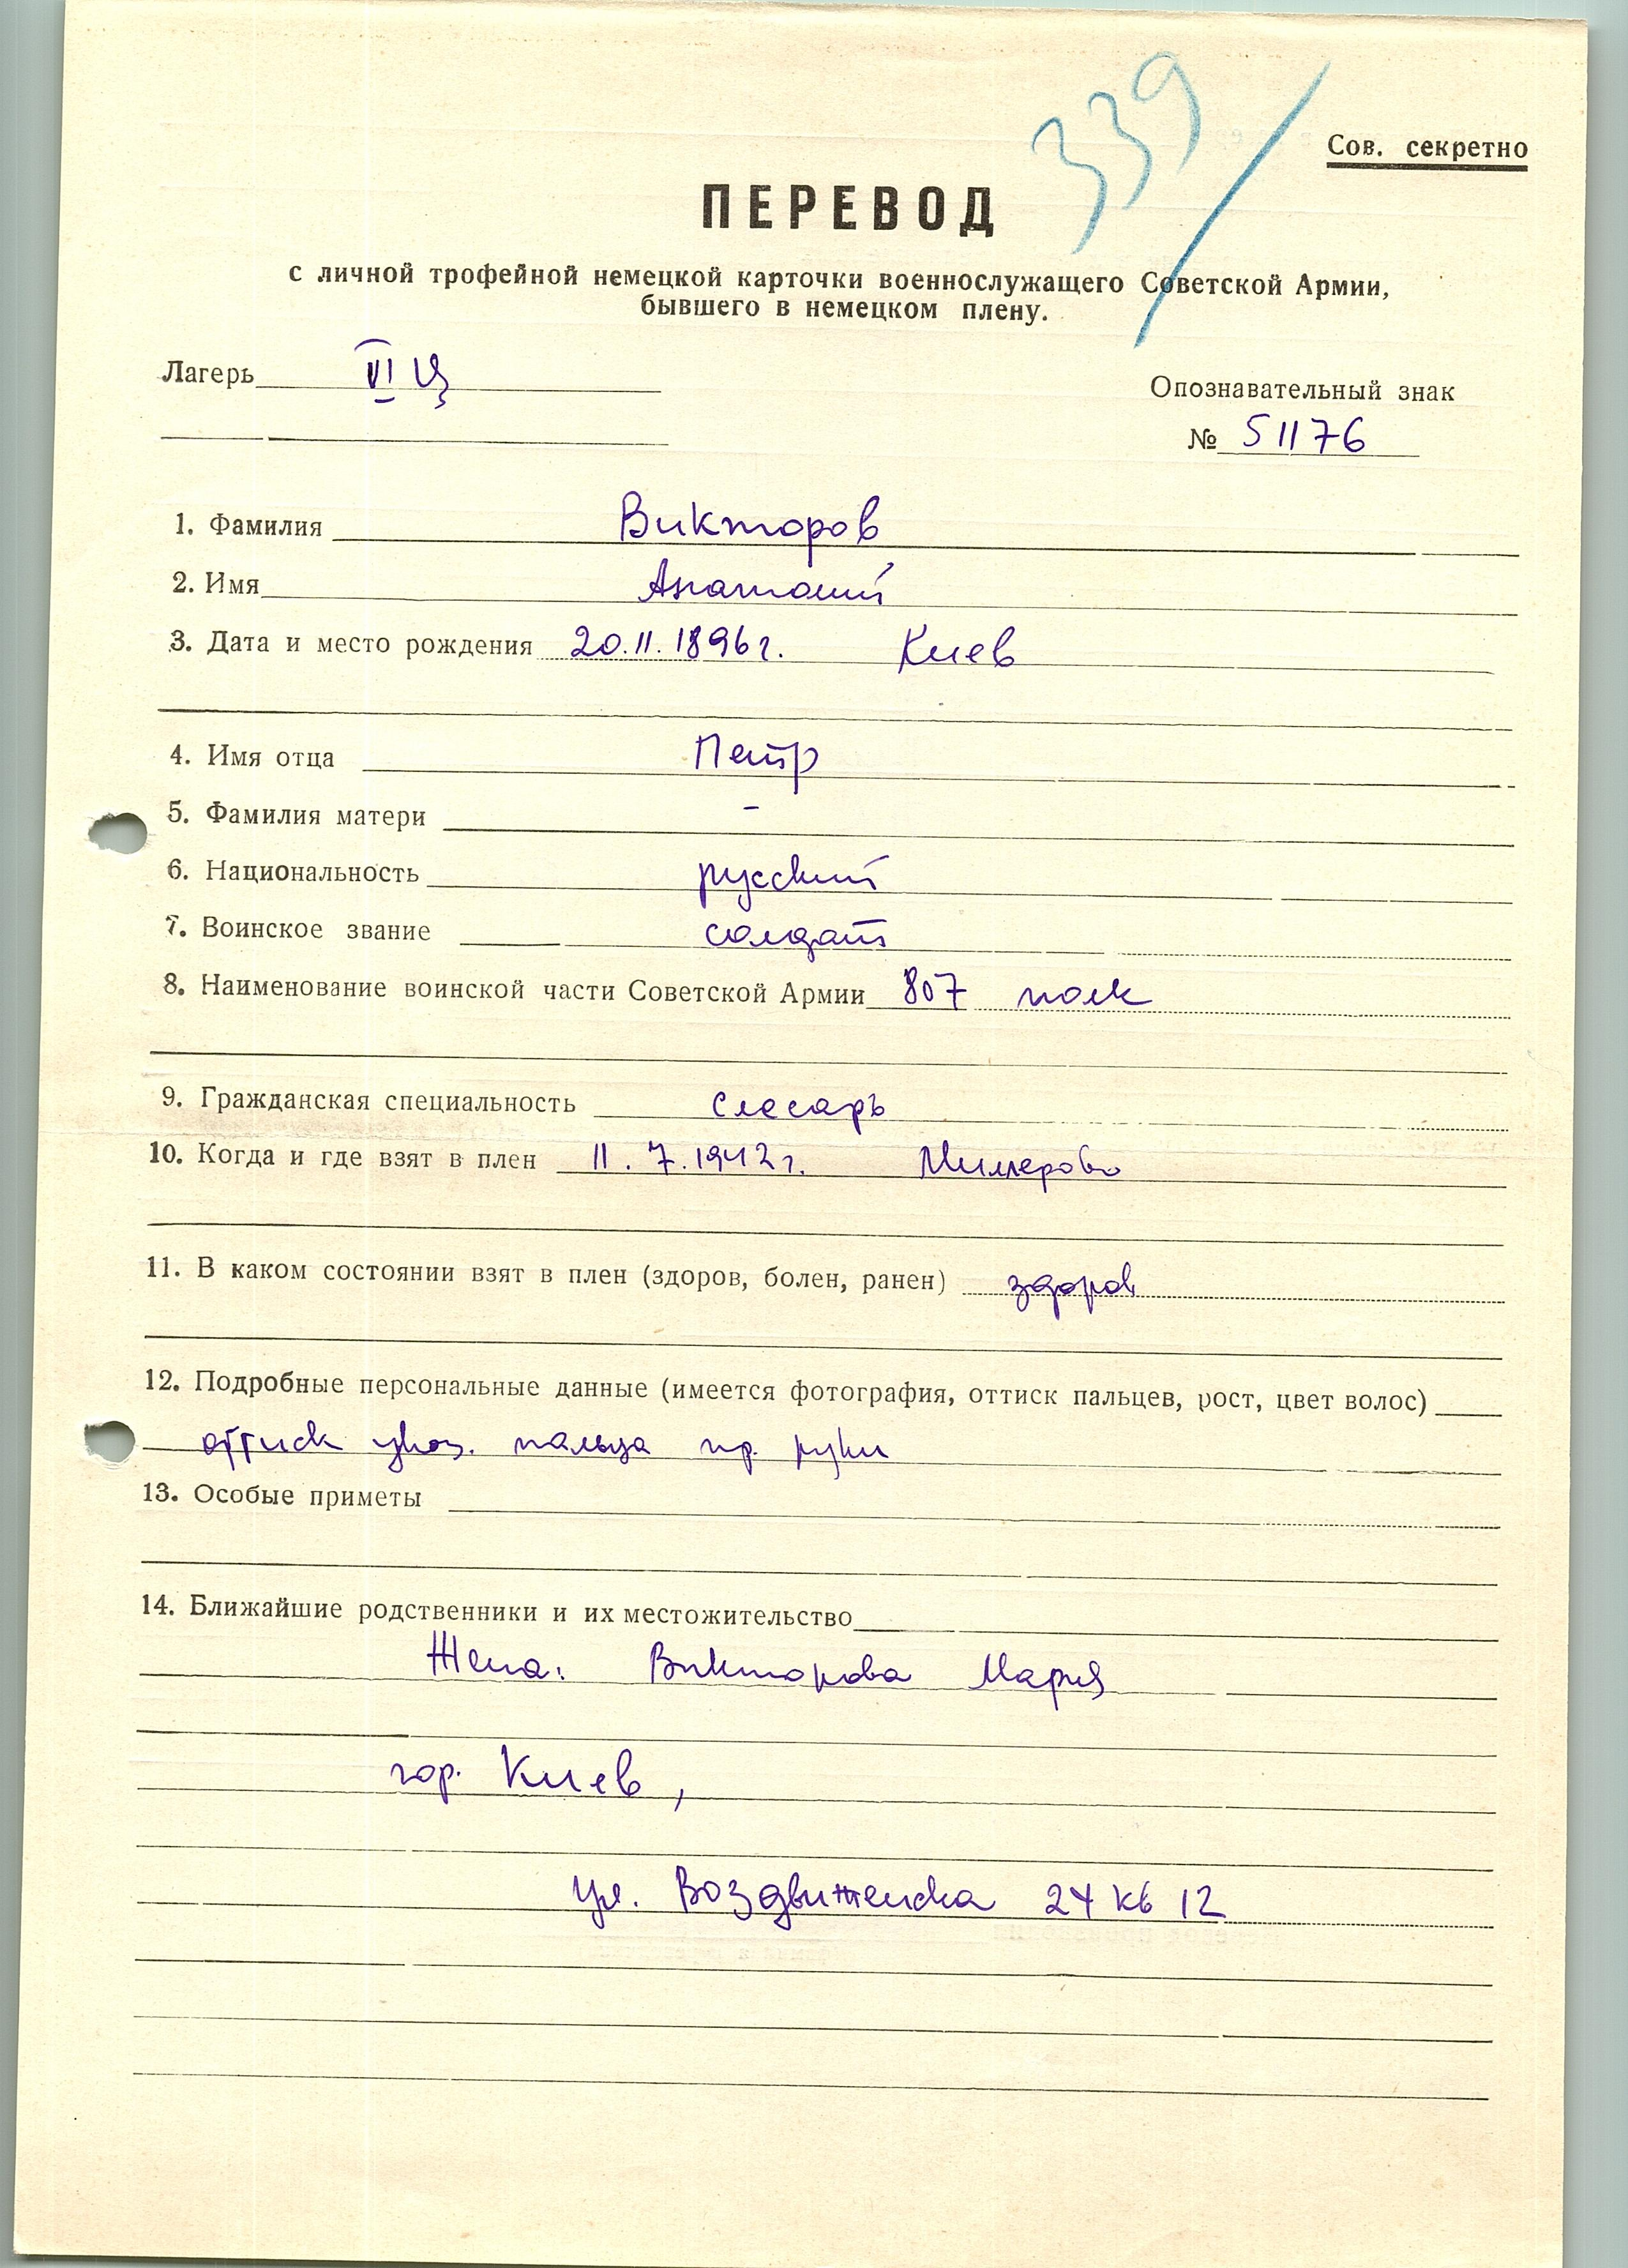 339
Сов. секретно
ПЕРЕВОД
с личной трофейной немецкой карточки военнослужащего Советской Армии,
бывшего в немецком плену.
Лагерь VI Ц
Опознавательный знак
№ 51176
1. Фамилия Викторов
2. Имя Анатолий
3. Дата и место рождения 20.11.1896г. Киев
4. Имя отца Петр
5. Фамилия матери –
6. Национальность русский
7. Воинское звание солдат
8. Наименование воинской части Советской Армии 807 полк
9. Гражданская специальность слесарь
10. Когда и где взят в плен 11.7.1942г. Миллерово
11. В каком состоянии взят в плен (здоров, болен, ранен) здоров
12. Подробные персональные данные (имеется фотография, оттиск пальцев, рост, цвет волос)
оттиск указ. пальца пр. руки
13. Особые приметы
14. Ближайшие родственники и их местожительство
Жена: Викторова Мария
гор. Киев,
ул. Воздвиженска 24 кв 12